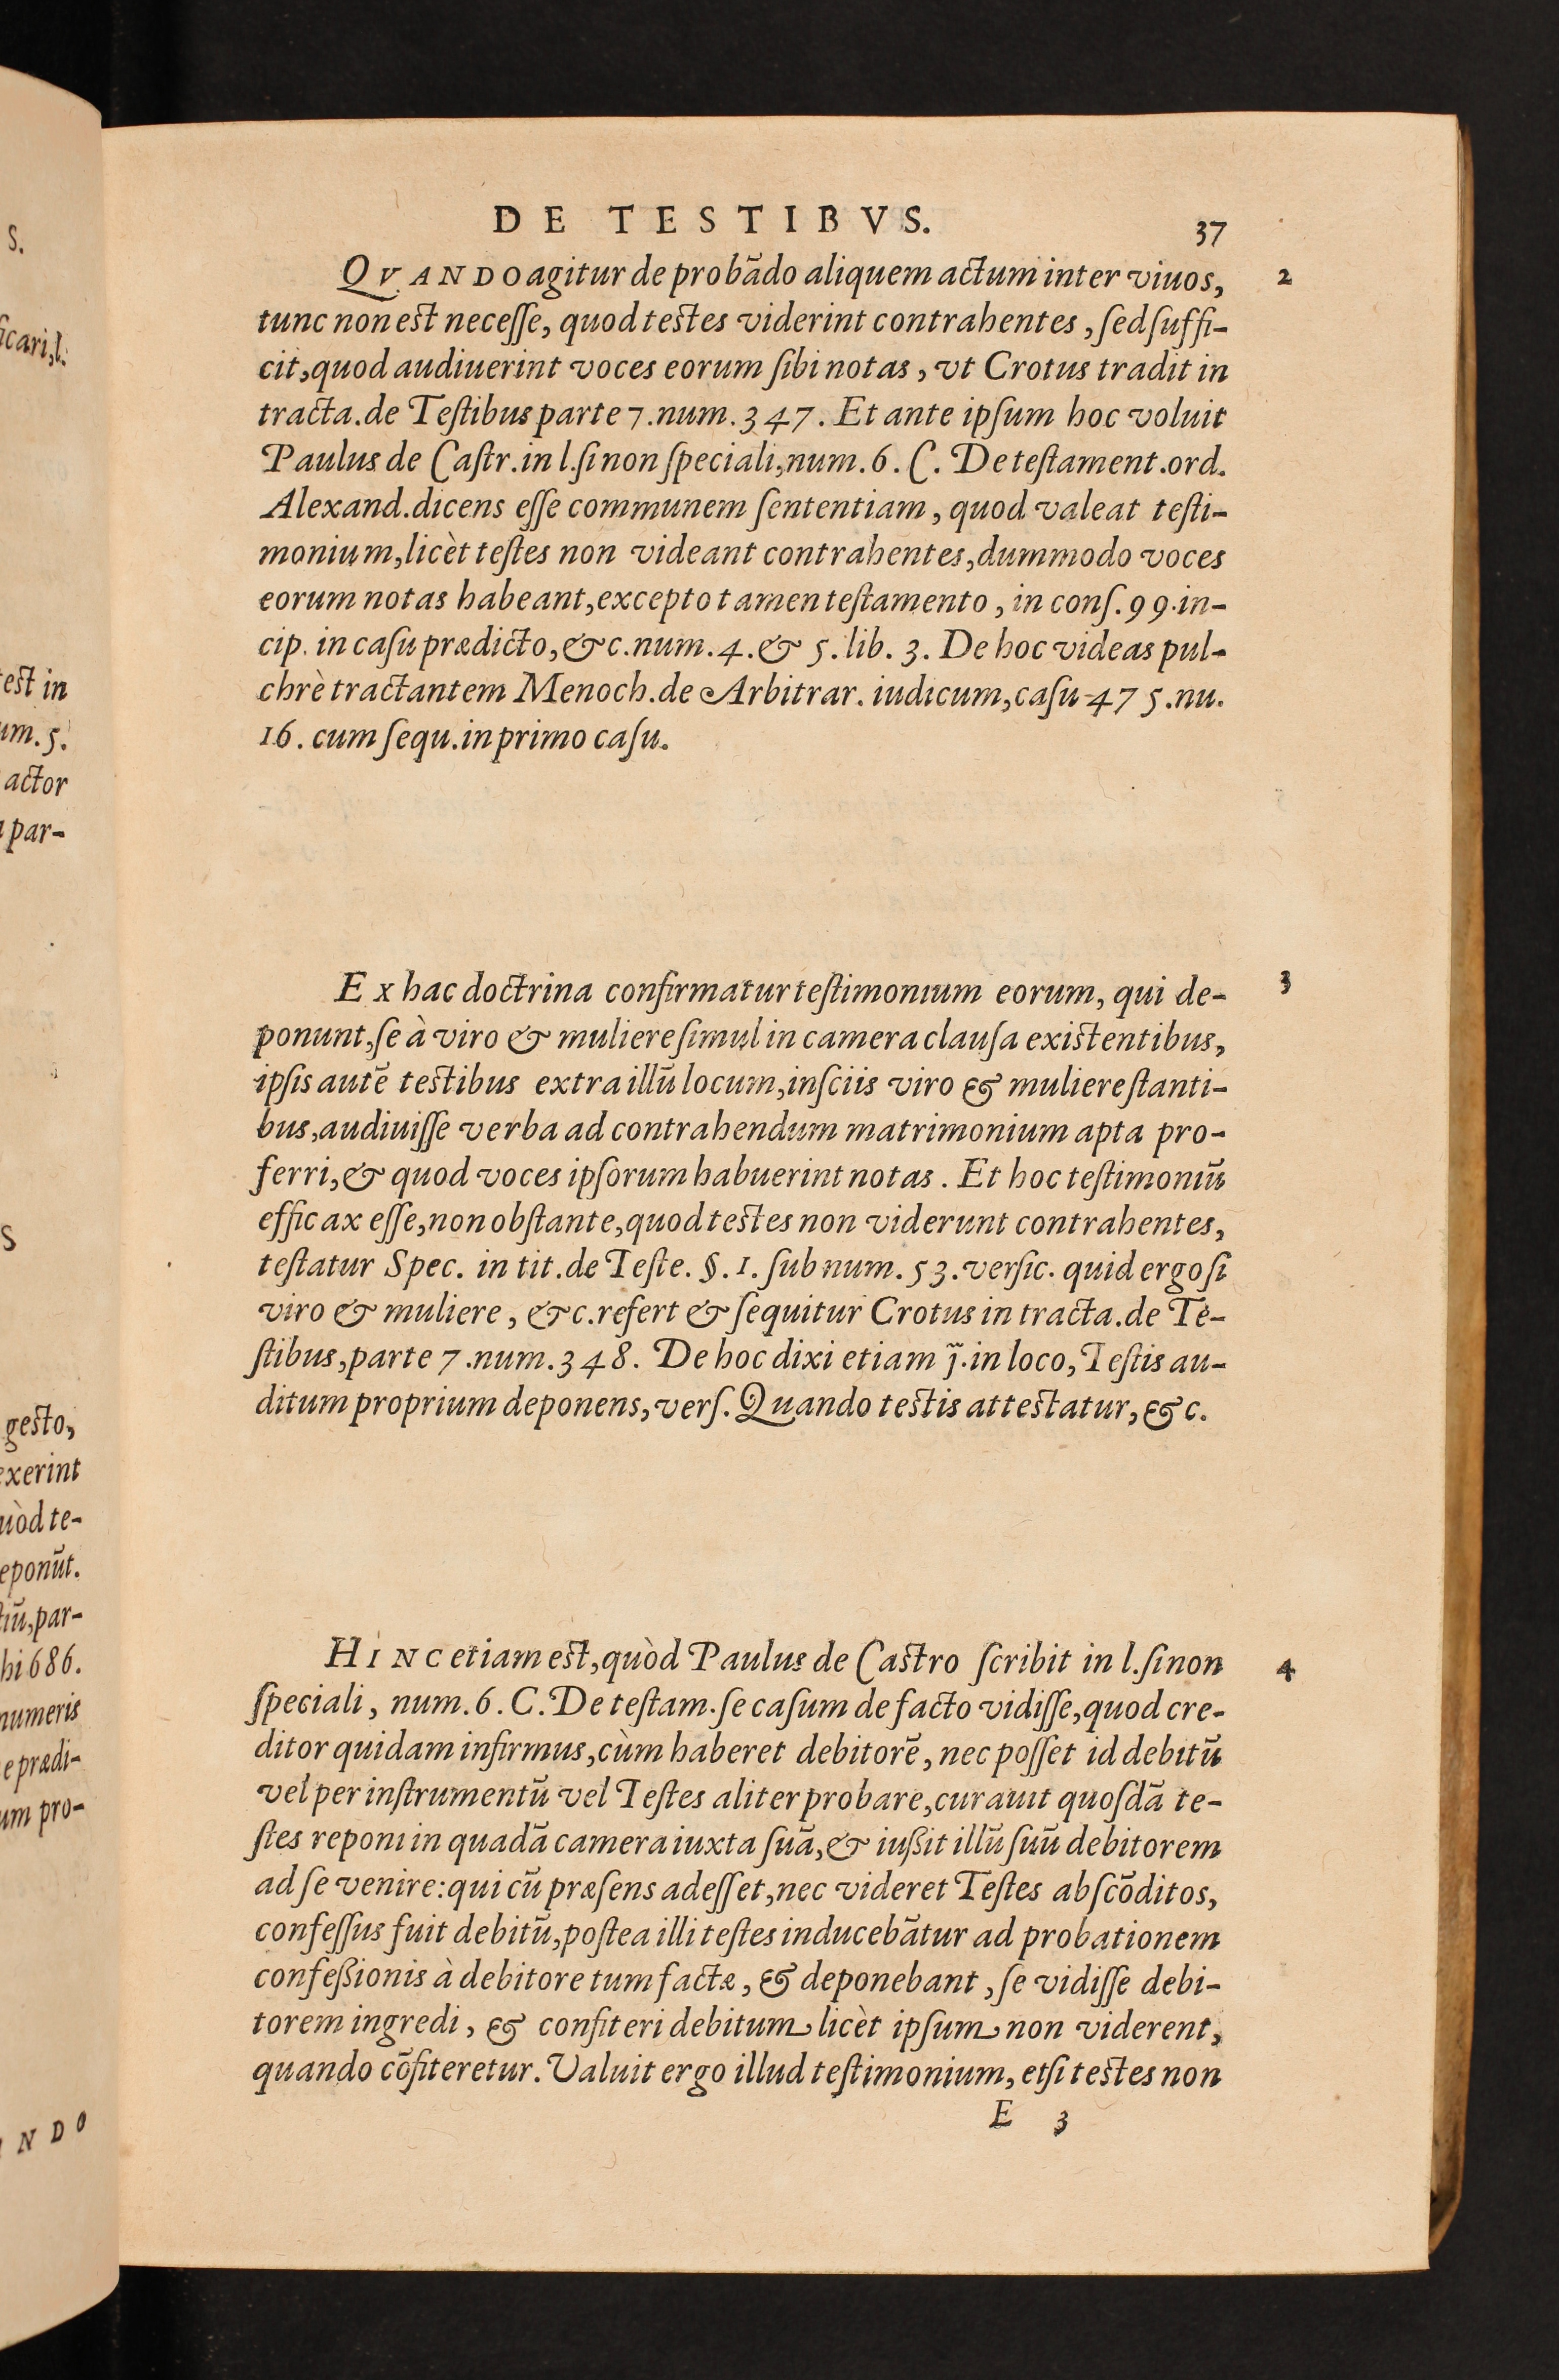 S.
icari,l.
est in
um. 5.
actor
par-
S
gesto,
exerint
uòd te-
eponūt.
tiū,par-
hi 686.
numeris
e prædi-
um pro-
NDO
DE TESTIBVS.
37
QVANDO agitur de probādo aliquem actum inter viuos,
2
tunc non est necesse, quod testes viderint contrahentes, sed suffi-
cit, quod audiuerint voces eorum sibi notas, vt Crotus tradit in
tracta.de Testibus parte 7.num.347. Et ante ipsum hoc voluit
Paulus de Castr.in l.si non speciali,num.6.C. De testament.ord.
Alexand.dicens esse communem sententiam, quod valeat testi-
monium,licèt testes non videant contrahentes,dummodo voces
eorum notas habeant,excepto tamen testamento, in cons.99.in-
cip. in casu prædicto,&c.num.4.& 5.lib. 3. De hoc videas pul-
chrè tractantem Menoch.de Arbitrar. iudicum,casu 475.nu.
16. cum sequ.in primo casu.
Ex hac doctrina confirmatur testimonium eorum, qui de-
3
ponunt,se à viro & muliere simul in camera clausa existentibus,
ipsis autē testibus extra illū locum,insciis viro & muliere stanti-
bus,audiuisse verba ad contrahendum matrimonium apta pro-
ferri,& quod voces ipsorum habuerint notas. Et hoc testimoniū
efficax esse,non obstante,quod testes non viderunt contrahentes,
testatur Spec. in tit.de Teste. §.1. sub num. 53.versic. quid ergo si
viro & muliere, &c.refert & sequitur Crotus in tracta.de Te-
stibus,parte 7.num.348. De hoc dixi etiam j̃.in loco,Testis au-
ditum proprium deponens,vers.Quando testis attestatur,&c.
HINC etiam est,quòd Paulus de Castro scribit in l.si non
4
speciali, num.6.C.De testam.se casum de facto vidisse,quod cre-
ditor quidam infirmus,cùm haberet debitorē, nec posset id debitū
vel per instrumentū vel Testes aliter probare,curauit quosdā te-
stes reponi in quadā camera iuxta suā,& iußit illū suū debitorem
ad se venire:qui cū præsens adesset,nec videret Testes abscōditos,
confessus fuit debitū,postea illi testes inducebātur ad probationem
confeßionis à debitore tum factæ, & deponebant, se vidisse debi-
torem ingredi, & confiteri debitum licèt ipsum non viderent,
quando cōfiteretur. Valuit ergo illud testimonium, etsi testes non
E 3